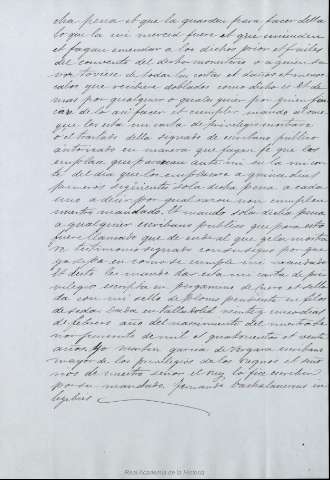 cha pena et que la guarden para facer della
lo que la mi merced fuere et que enmienden
et fagan enmendar a los dichos prior et frailes
del convento del dicho monasterio o a quien su
vos toviere de todas las costas et daños et menos
cabos que recibiere doblados como dicho es et de
mas por qualquier o qualesquier por quien fin
care de lo ansi facer et complir mando al ome
que les esta mi carta de privilegio mostrare
o el traslado della signado de escribano publico
autorizado en manera que faga fe que los
emplase que parescan ante mi en la mi cor
te del dia que los emplasare a quince dias
primeros siguientes sola dicha pena a cada
uno a decir por qual razon non cumplen
nuestro mandado. Et mando sola dicha pena
a qualquier escribano publico que para esto
fuere llamado que de ende al que gela mostra
re testimonio signado con su signo por que
yo sepa en como se cumple mi mandado
Et desto les mande dar esta mi carta de pri
vilegio escripta en pergamino de cuero et sella
da con mi sello de plomo pendiente en filos
de seda. Dada en Valladolid veinte
de febrero año del nascimiento del nuestro Se
nor
de mil et quatrocientos et veinte
años. Yo Martin Garcia de Vergara escribano
mayor de los privilegios de los Regnos et Seño
rios de nuestro señor el Rey, lo fice escribir
por su mandado. Fernandus Bachalaureus in
legibus
Real Academia de la Historia